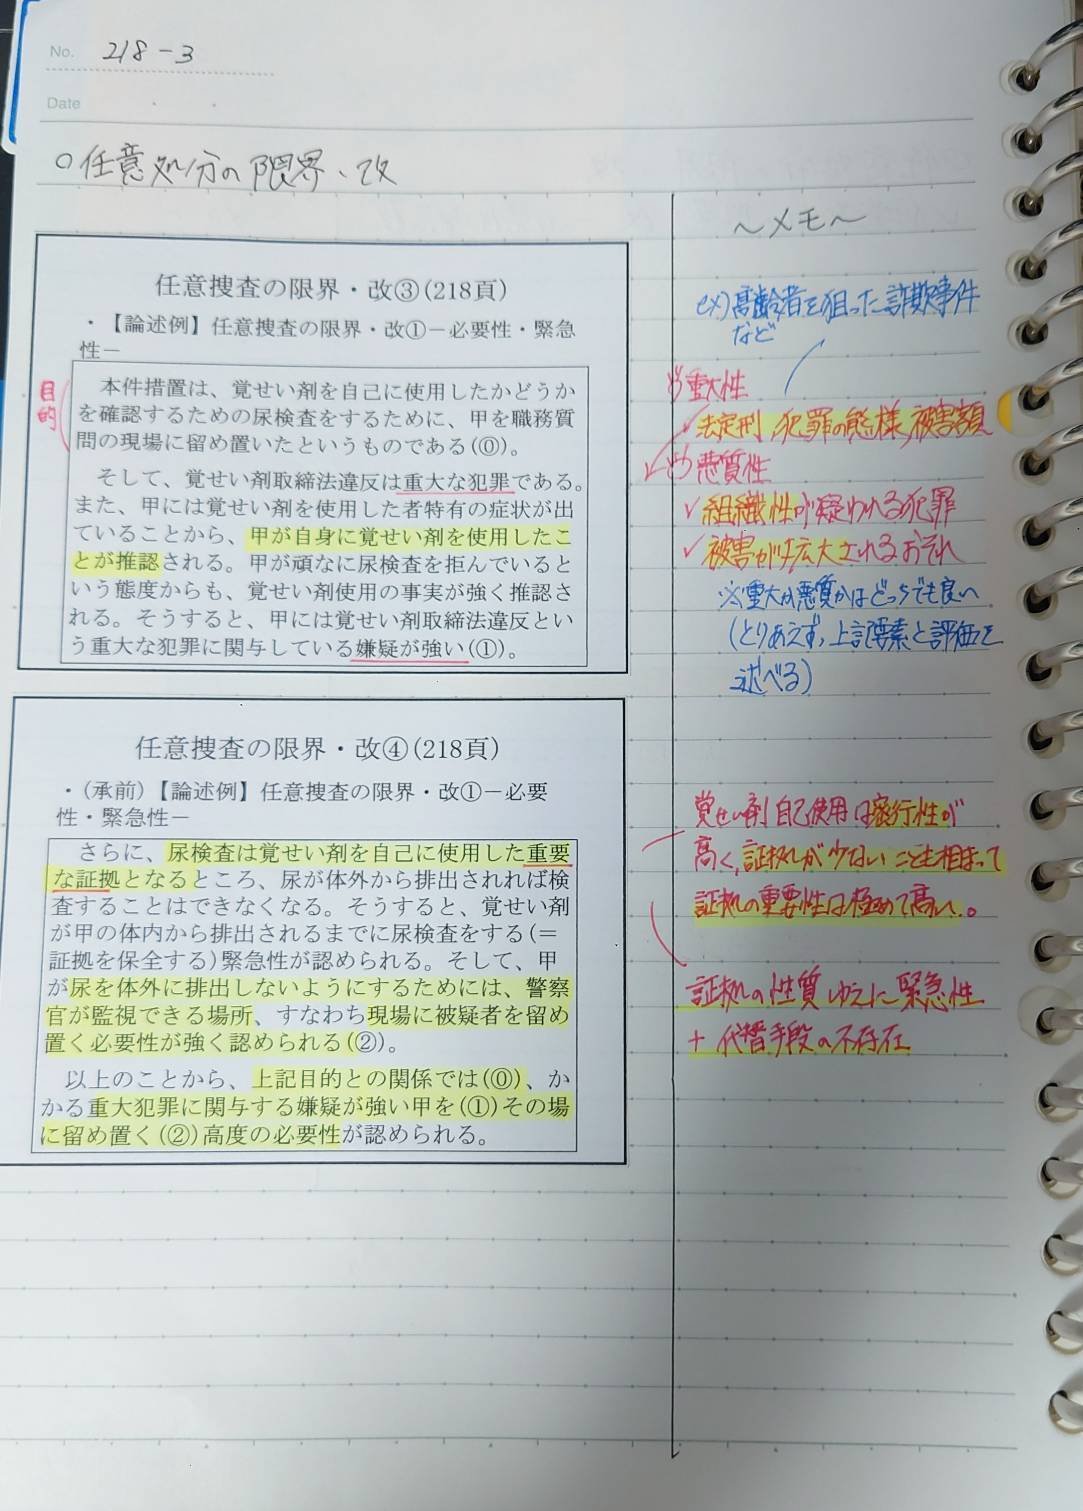 No. 218-3
Date
○任意処分の限界、改
～メモ～
任意捜査の限界・改③(218頁)
・【論述例】任意捜査の限界・改①－必要性・緊急
性－
目的
本件措置は、覚せい剤を自己に使用したかどうか
を確認するための尿検査をするために、甲を職務質
問の現場に留め置いたというものである(⓪)。
そして、覚せい剤取締法違反は重大な犯罪である。
また、甲には覚せい剤を使用した者特有の症状が出
ていることから、甲が自身に覚せい剤を使用したこ
とが推認される。甲が頑なに尿検査を拒んでいると
いう態度からも、覚せい剤使用の事実が強く推認さ
れる。そうすると、甲には覚せい剤取締法違反とい
う重大な犯罪に関与している嫌疑が強い(①)。
ex)高齢者を狙った詐欺事件
など
重大性
✓法定刑,犯罪の態様,被害額
悪質性
✓組織性が疑われる犯罪
✓被害が広大されるおそれ
※重大か悪質かはどっちでも良い
(とりあえず,上記要素と評価を
述べる)
任意捜査の限界・改④(218頁)
・(承前)【論述例】任意捜査の限界・改①－必要
性・緊急性－
さらに、尿検査は覚せい剤を自己に使用した重要
な証拠となるところ、尿が体外から排出されれば検
査することはできなくなる。そうすると、覚せい剤
が甲の体内から排出されるまでに尿検査をする(＝
証拠を保全する)緊急性が認められる。そして、甲
が尿を体外に排出しないようにするためには、警察
官が監視できる場所、すなわち現場に被疑者を留め
置く必要性が強く認められる(②)。
以上のことから、上記目的との関係では(⓪)、か
かる重大犯罪に関与する嫌疑が強い甲を(①)その場
に留め置く(②)高度の必要性が認められる。
覚せい剤自己使用は密行性が
高く,証拠が少ないことも相まって
証拠の重要性は極めて高い。
証拠の性質ゆえに緊急性
+代替手段の不存在